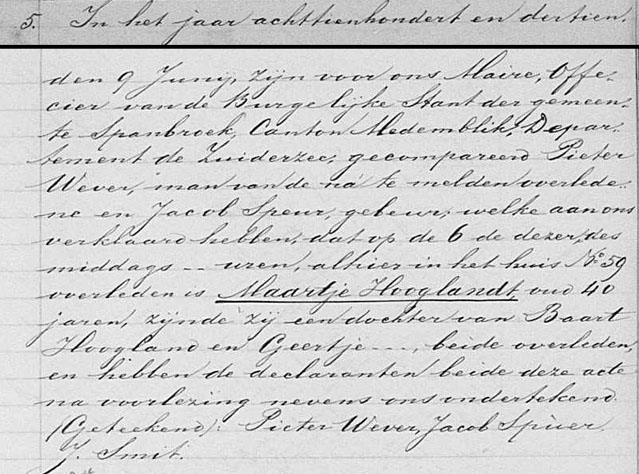 5. In het jaar achttienhondert en dertien.
den 9 Junij, zijn voor ons Maire, Offe-
cier van de Burgelijke Stant der gemeen-
te Spanbroek, Canton Medemblik, Depar-
tement de Zuiderzee, gecompareerd Pieter
Wever, man van de na te melden overlede-
ne en Jacob Speur, gebeur, welke aan ons
verklaard hebben, dat op de 6 de dezer, des
middags -- uren, alhier in het huis No 59
overleden is Maartje Hooglandt, oud 40
jaren, zijnde zij een dochter van Baart
Hoogland en Geertje ---, beide overleden,
en hebben de declaranten beide deze acte
na voorlezing nevens ons ondertekend.
(Geteekend): Pieter Wever, Jacob Speuer.
J. Smit.